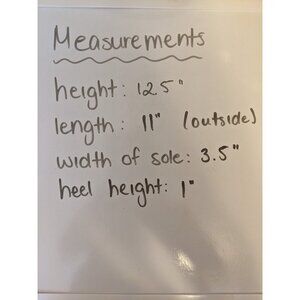 Measurements
height: 12.5"
length: 11" (outside)
width of sole: 3.5"
heel height: 1"